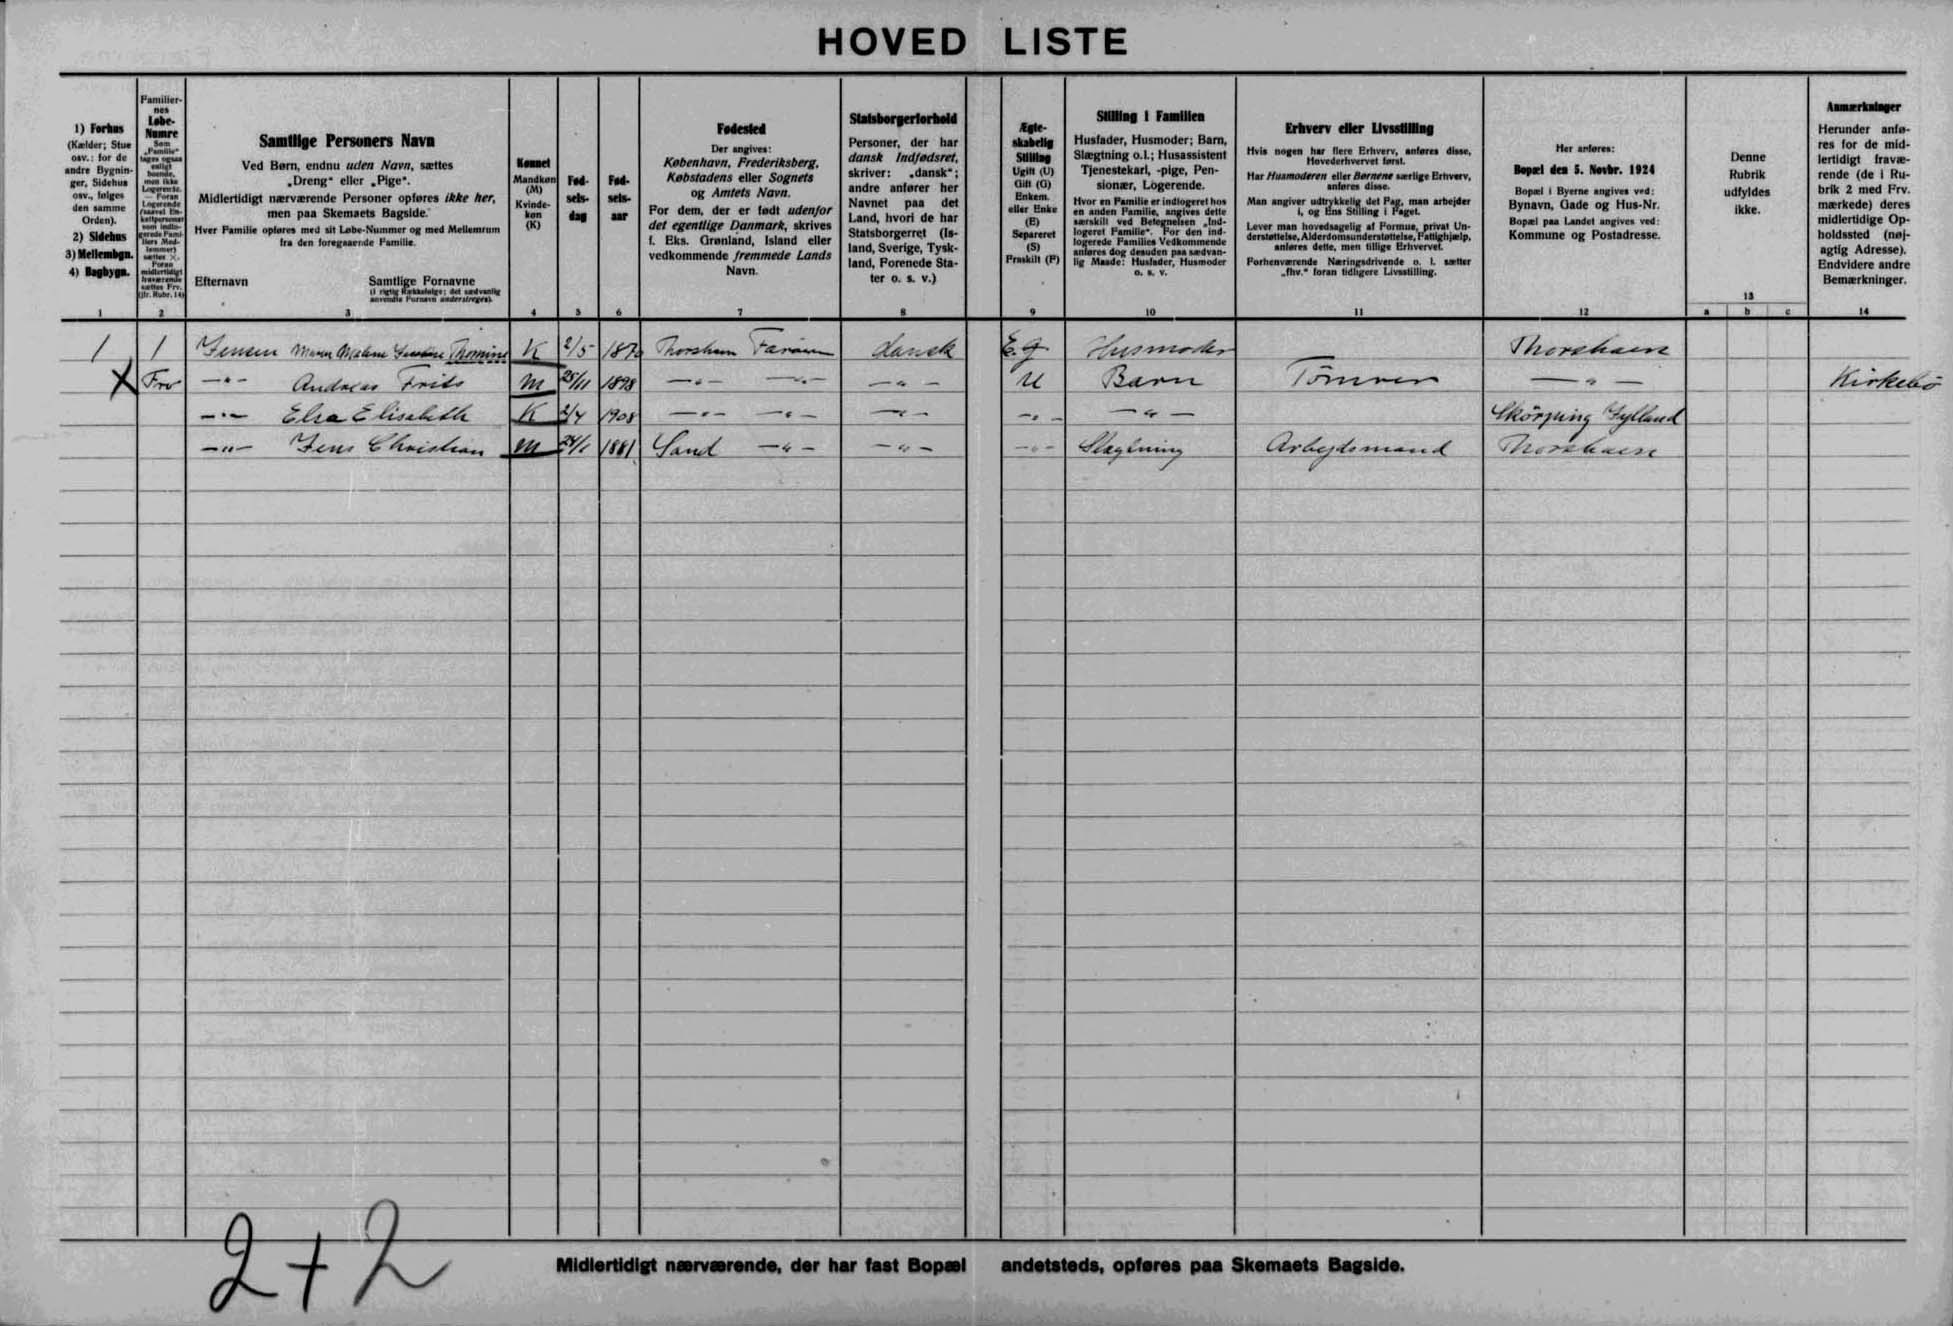 HOVED LISTE
1) Forhus
(Kælder; Stue
osv.: for de
andre Bygnin-
ger, Sidehus
osv., følges
den samme
Orden).
2) Sidehus
3) Mellembgn.
4) Bagbygn.
1
Familier-
nes
Løbe-
Numre
Som
„Familie“
tages ogsaa
enligt
boende,
men ikke
Logerende.
— Foran
Logerende
(saavel En-
keltpersoner
som indlo-
gerede Fami-
liers Med-
lemmer)
sættes ×.
Foran
midlertidigt
fraværende
sættes Frv.
(jfr. Rubr. 14)
2
Samtlige Personers Navn
Ved Børn, endnu uden Navn, sættes
„Dreng“ eller „Pige“.
Midlertidigt nærværende Personer opføres ikke her,
men paa Skemaets Bagside.
Hver Familie opføres med sit Løbe-Nummer og med Mellemrum
fra den foregaaende Familie.
Efternavn Samtlige Fornavne
(i rigtig Rækkefølge; det sædvanlig
anvendte Fornavn understreges).
3
Kønnet
Mandkøn
(M)
Kvinde-
køn
(K)
4
Fød-
sels-
dag
5
Fød-
sels-
aar
6
Fødested
Der angives:
København, Frederiksberg,
Købstadens eller Sognets
og Amtets Navn.
For dem, der er født udenfor
det egentlige Danmark, skrives
f. Eks. Grønland, Island eller
vedkommende fremmede Lands
Navn.
7
Statsborgerforhold
Personer, der har
dansk Indfødsret,
skriver: „dansk“;
andre anfører her
Navnet paa det
Land, hvori de har
Statsborgerret (Is-
land, Sverige, Tysk-
land, Forenede Sta-
ter o. s. v.)
8
Ægte-
skabelig
Stilling
Ugift (U)
Gift (G)
Enkem.
eller Enke
(E)
Separeret
(S)
Fraskilt (F)
9
Stilling i Familien
Husfader, Husmoder; Barn,
Slægtning o.l.; Husassistent
Tjenestekarl, -pige, Pen-
sionær, Logerende.
Hvor en Familie er indlogeret hos
en anden Familie, angives dette
særskilt ved Betegnelsen „Ind-
logeret Familie“. For den ind-
logerede Families Vedkommende
anføres dog desuden paa sædvan-
lig Maade: Husfader, Husmoder
o. s. v.
10
Erhverv eller Livsstilling
Hvis nogen har flere Erhverv, anføres disse,
Hovederhvervet først.
Har Husmoderen eller Børnene særlige Erhverv,
anføres disse.
Man angiver udtrykkelig det Fag, man arbejder
i, og Ens Stilling i Faget.
Lever man hovedsagelig af Formue, privat Un-
derstøttelse, Alderdomsunderstøttelse, Fattighjælp,
anføres dette, men tillige Erhvervet.
Forhenværende Næringsdrivende o. l. sætter
„fhv.“ foran tidligere Livsstilling.
11
Her anføres:
Bopæl den 5. Novbr. 1924
Bopæl i Byerne angives ved:
Bynavn, Gade og Hus-Nr.
Bopæl paa Landet angives ved:
Kommune og Postadresse.
12
Denne
Rubrik
udfyldes
ikke.
13
a b c
Anmærkninger
Herunder anfø-
res for de mid-
lertidigt fravæ-
rende (de i Ru-
brik 2 med Frv.
mærkede) deres
midlertidige Op-
holdssted (nøj-
agtig Adresse).
Endvidere andre
Bemærkninger.
14
1 1 Jensen Maren Malene Thomine K 2/5 1870 Thorshavn Færøerne dansk E. g Husmoder Thorshavn
X Frv -"- Andreas Frits M 25/11 1898 -"- -"- -"- U Barn Tømrer -"- Kirkebö
-"- Elsa Elisabeth K 2/4 1908 -"- -"- -"- -"- -"- Skörping Jylland
-"- Jens Christian M 24/1 1881 Sand -"- -"- -"- Slægtning Arbejdsmand Thorshavn
2+2
Midlertidigt nærværende, der har fast Bopæl andetsteds, opføres paa Skemaets Bagside.